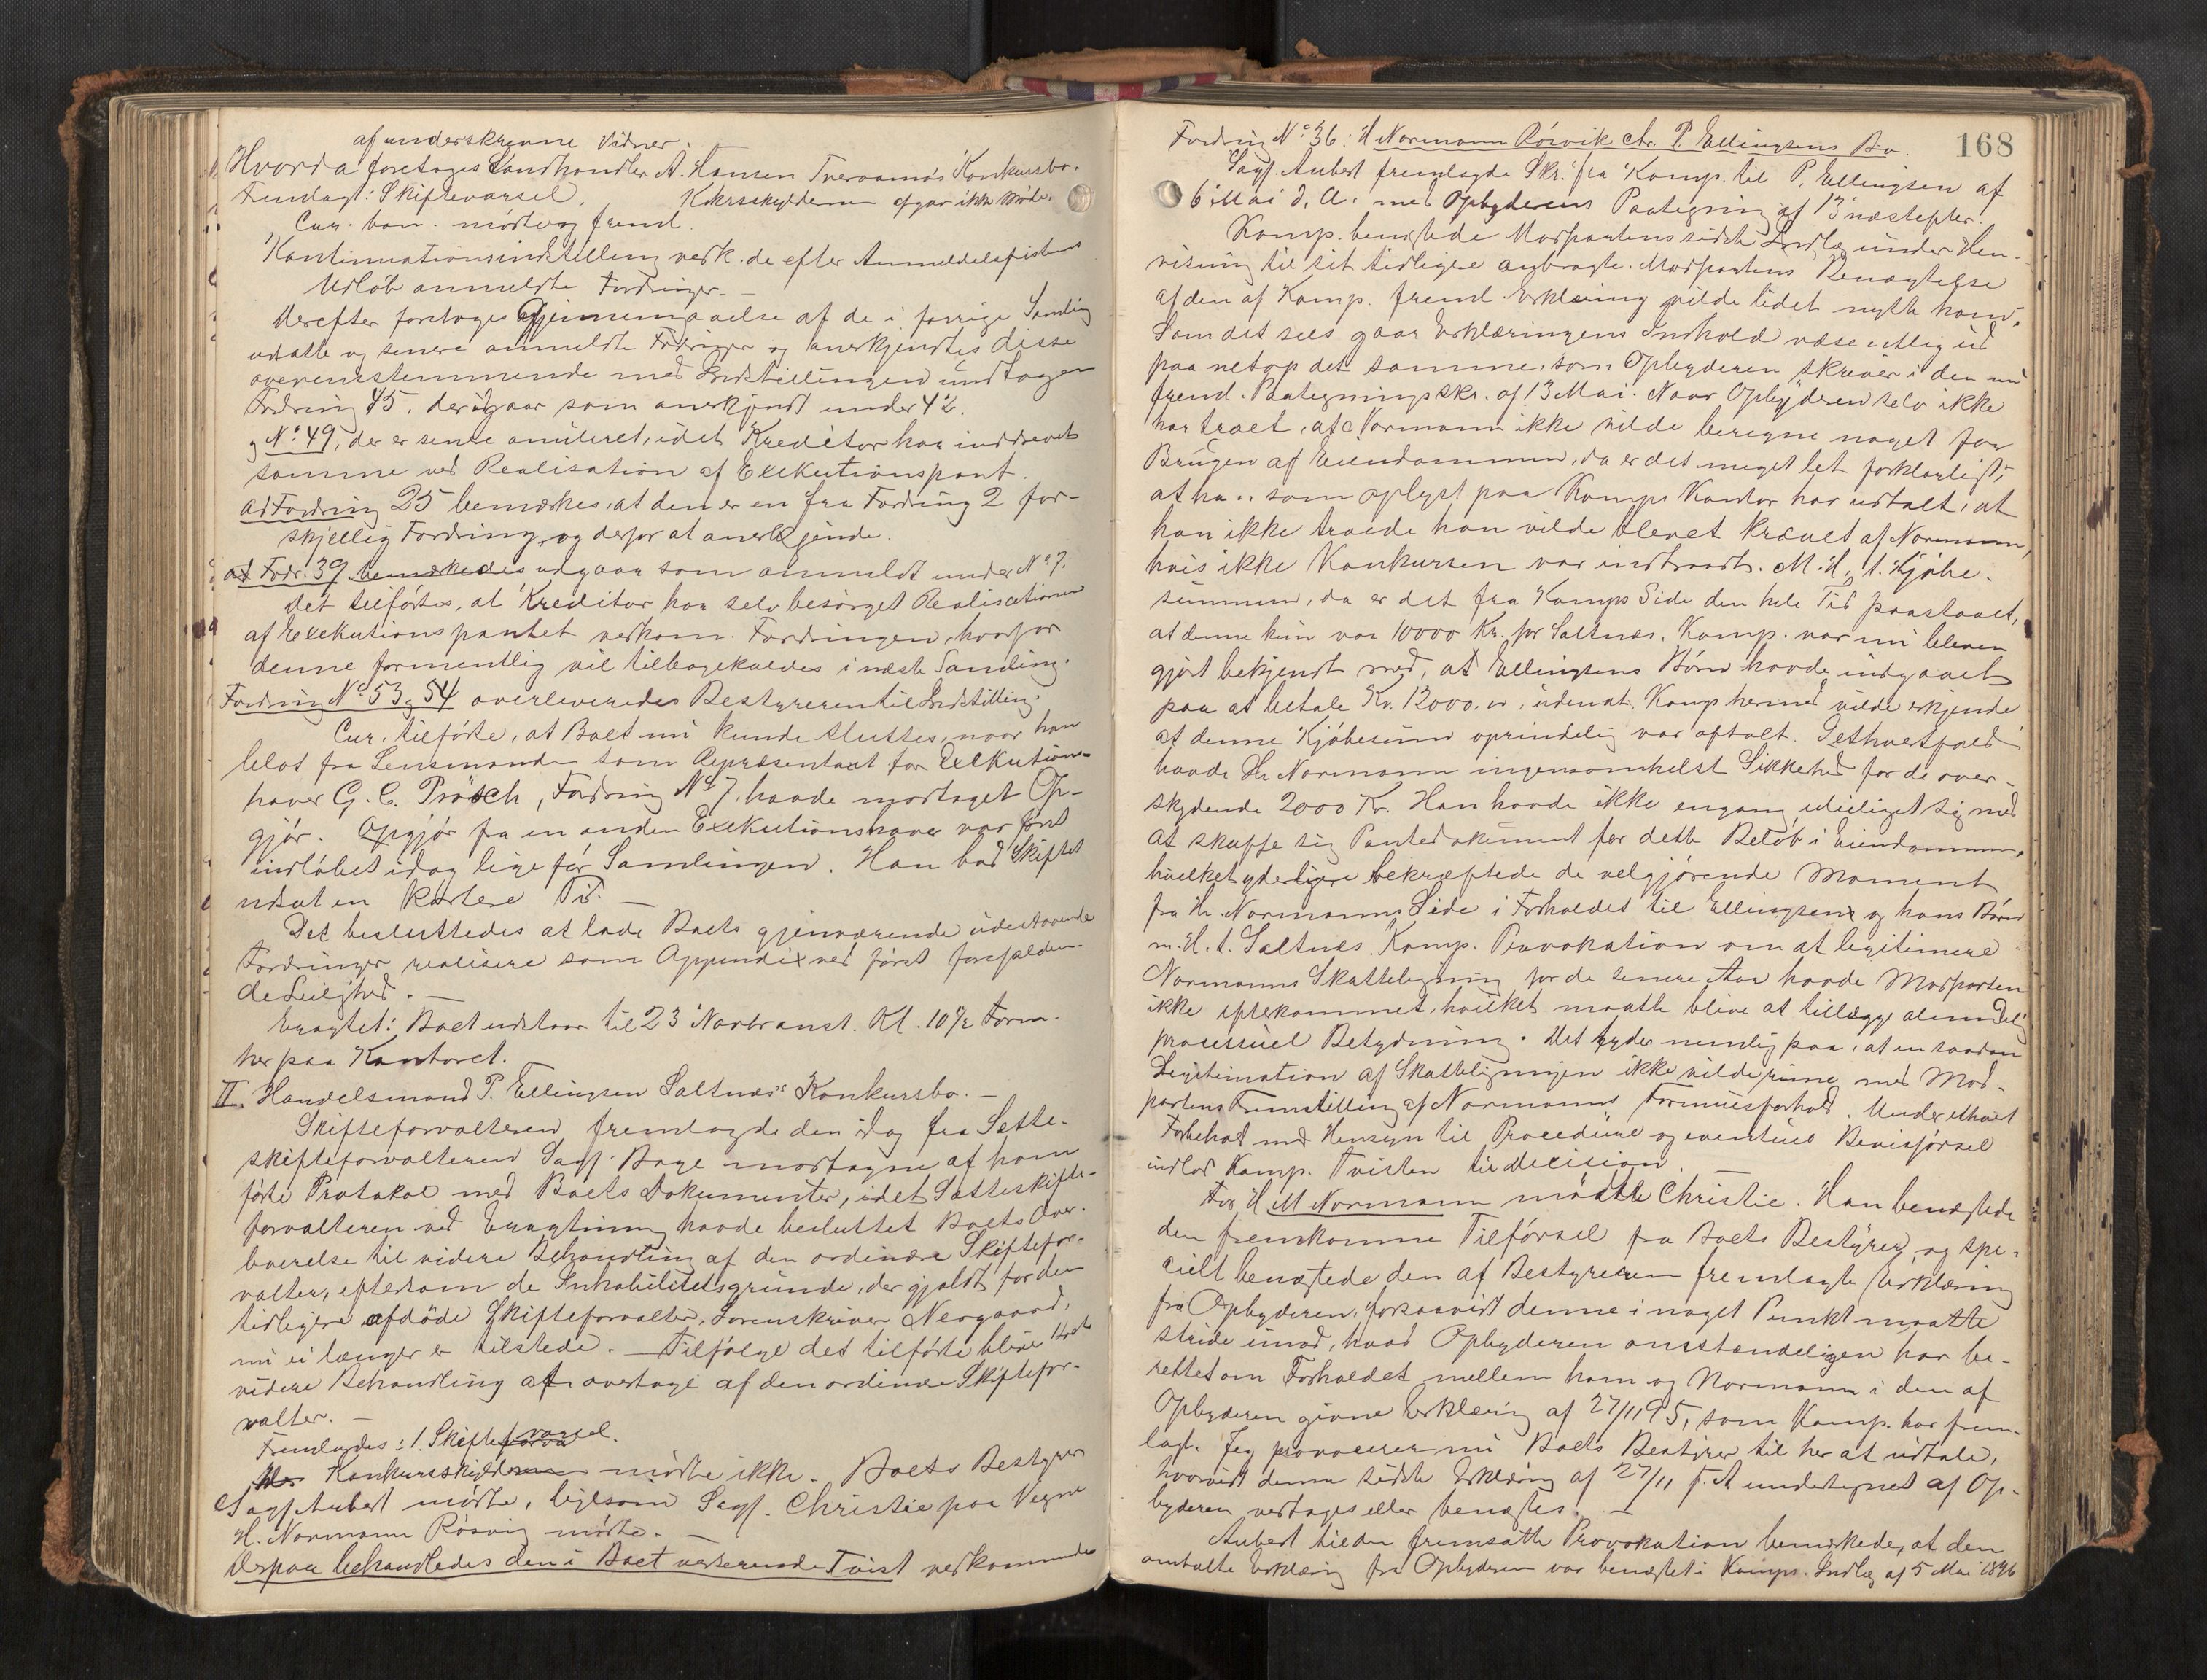 af underskrevne Vidner.
Hvorda foretoges Landhandler A. Hansen Tveraamo's Konkursbo.
Fremlagt: Skiftevarsel. Kkrsskyldneren afgav ikke Møde.
Cur. bon. mødte og freml.
Kontinuationsindstilling vedk. de efter Anmeldelsesfristens
Udløb anmeldte Fordringer. —
Derefter foretoges Gjennemgaaelse af de i forrige Samling
udsatte og senere anmeldte Fordringer og anerkjendtes disse
overensstemmende med Indstillingen undtagen
Fordring 45, der udgaar som anerkjendt under 42.
og No. 49, der er senere anuleret, idet Kreditor har inddrevet
samme ved Realisation af Exekutionspant.
ad Fordring 25 bemærkes, at den er en fra Fordring 2 for-
skjellig Fordring, og derfor at anerkjende.
ad Fodr. 39 bemærkedes udgaar som anmeldt under No 7.
Det tilførtes, at Kreditor har selv besørget Realisationen
af Exekutionspantet vedkom. Fordringen, hvorfor
denne formentlig vil tilbagekaldes i næste Samling.
Fordring No 53 og 54 overleveredes Bestyreren til Indstilling.
Cur. tilførte, at Boet nu kunde sluttes, naar han
blot fra Lensmanden som Repræsentant for Exekutions-
haver G. C. Prösch, Fordring No 7, havde modtaget Op-
gjør. Opgjør fra en anden Exekutionshaver var først
indløbet idag lige før Samlingen. Han bad Skiftet
udsat en kortere Tid. —
Det besluttedes at lade Boets gjenværende udestaaende
Fordringer realisere som Appendix ved først forefalden-
de Leilighed. —
Eragtet: Boet udstaar til 23 Novbr anst. Kl. 10½ Form.
her paa Kontoret. —
II. Handelsmand P. Ellingsen Saltnæs's Konkursbo. —
Skifteforvalteren fremlagde den idag fra Sætte-
skifteforvalteren Sagf. Bage modtagne af ham
førte Protokol med Boets Dokumenter, idet Sætteskifte-
forvalteren ved Eragtning havde besluttet Boets Over-
leverelse til videre Behandling af den ordinære Skiftefor-
valter, eftersom de Inhabilitetsgrunde, der gjaldt for den
tidligere afdöde Skifteforvalter, Sorenskriver Neergaard,
nu ei længer er tilstede. — Tilfølge det tilførte bliver Boets
videre Behandling at overtage af den ordinære Skiftefor-
valter. —
Fremlagdes: 1. Skiftevarsel.
Konkursskyldneren mødte ikke. Boets Bestyrer
Sagf. Aubert mødte, ligesom Sagf. Christie paa Vegne
H. Normann Rösvig mødte. —
Derpaa behandledes den i Boet verserende Tvist vedkommende
168
Fordring No. 36: H Normann Rösvik ctr. P. Ellingsens Bo.
Sagf. Aubert fremlagde Skr. fra Komp. til P. Ellingsen af
6 Mai d. A. med Opbyderens Paategning af 13 næstefter.
Komp. benegtede Modpartens sidste Indlæg under Hen-
visning til sit tidligere anbragte. Modpartens Benægtelse
af den af Komp. freml. Erklæring vilde lidet nytte ham.
Som det sees gaar Erklæringens Indhold væsentlig ud
paa netop det samme, som Opbyderen skriver i den nu
freml. Paategningsskr. af 13 Mai. Naar Opbyderen selv ikke
har troet, at Normann ikke vilde beregne noget for
Brugen af Eiendommen, da er det meget let forklarligt,
at han som oplyst paa Komps Kontor har udtalt, at
han ikke troede han vilde blevet krævet af Normann,
hvis ikke Konkursen var indtraadt. M. H. t. Kjøbe-
summen, da er det fra Komps Side den hele Tid paastaaet,
at denne kun var 10000 Kr. for Saltnæs. Komp. var nu bleven
gjort bekjendt med, at Ellingsens Børn havde indgaaet
paa at betale Kr. 12000.00, uden at Komp hermed vilde erkjende
at denne Kjøbesum oprindelig var aftalt. I ethvertfald
havde Hr Normann ingensomhelst Sikkerhed for de over-
skydende 2000 Kr. Han havde ikke engang uleiliget sig med
at skaffe sig Pantedokument for dette Beløb i Eiendommen,
hvilket yderligere bekræftede de velgjørende Moment
fra Hr. Normanns Side i Forholdet til Ellingsen og hans Børn
m. H. t. Saltnes. Komp. Provokation om at legitimere
Normanns Skatteligning for de senere Aar havde Modparten
ikke efterkommet, hvilket maatte blive at tillægge almindelig
processuel Betydning. Det tyder nemlig paa, at en saadan
Legitimation af Skatteligningen ikke vilde rime med Mod-
partens Fremstilling af Normanns Formuesforhold. Under ethvert
Forbehold med Hensyn til Procedüre og eventuel Bevisførsel
indlod Komp. Tvisten til Decision.
For H M Normann mødte Christie. Han benægtede
den fremkomne Tilførsel fra Boets Bestyrer, og spe-
cielt benægtede den af Bestyreren fremlagte Erklæring
fra Opbyderen, forsaavidt denne i noget Punkt maatte
stride imod, hvad Opbyderen omstændeligen har be-
rettet om Forholdet mellem ham og Normann i den af
Opbyderen givne Erklæring af 27/11 95, som Komp. har frem-
lagt. Jeg provocerer nu Boets Bestyrer til her at udtale,
hvorvidt denne sidste Erklæring af 27/11 f. A undertegnet af Op-
byderen vedtages eller benægtes. —
Aubert til den fremsatte Provokation bemærkede, at den
omtalte Erklæring fra Opbyderen var benægtet i Komps. Indlæg af 5 Mai 1896